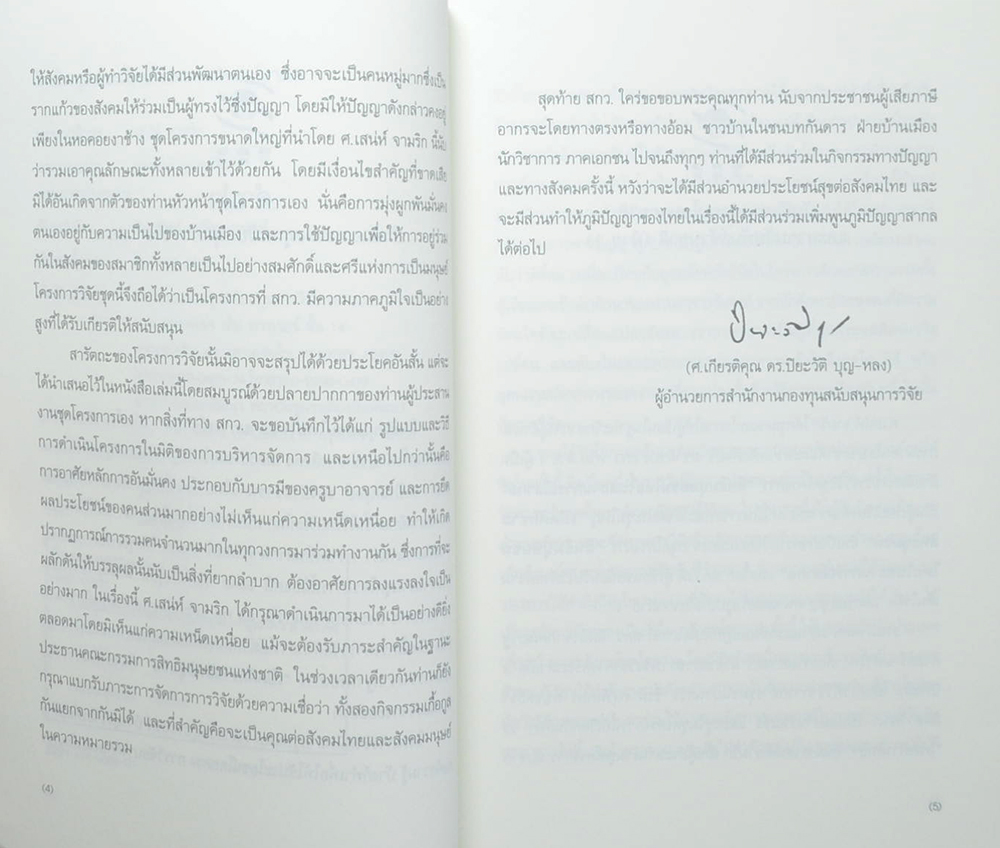 ให้สังคมหรือผู้ทำวิจัยได้มีส่วนพัฒนาตนเอง ซึ่งอาจจะเป็นคนหมู่มากซึ่งเป็น
รากแก้วของสังคมให้ร่วมเป็นผู้ทรงไว้ซึ่งปัญญา โดยมิให้ปัญญาดังกล่าวคงอยู่
เพียงในหอคอยงาช้าง ชุดโครงการขนาดใหญ่ที่นำโดย ศ.เสน่ห์ จามริก นี้นับ
ว่ารวมเอาคุณลักษณะทั้งหลายเข้าไว้ด้วยกัน โดยมีเงื่อนไขสำคัญที่ขาดเสีย
มิได้อันเกิดจากตัวของท่านหัวหน้าชุดโครงการเอง นั่นคือการมุ่งผูกพันมั่นคง
ตนเองอยู่กับความเป็นไปของบ้านเมือง และการใช้ปัญญาเพื่อให้การอยู่ร่วม
กันในสังคมของสมาชิกทั้งหลายเป็นไปอย่างสมศักดิ์และศรีแห่งการเป็นมนุษย์
โครงการวิจัยชุดนี้จึงถือได้ว่าเป็นโครงการที่ สกว. มีความภาคภูมิใจเป็นอย่าง
สูงที่ได้รับเกียรติให้สนับสนุน
สารัตถะของโครงการวิจัยนั้นมิอาจจะสรุปได้ด้วยประโยคอันสั้น แต่จะ
ได้นำเสนอไว้ในหนังสือเล่มนี้โดยสมบูรณ์ด้วยปลายปากกาของท่านผู้ประสาน
งานชุดโครงการเอง หากสิ่งที่ทาง สกว. จะขอบันทึกไว้ได้แก่ รูปแบบและวิธี
การดำเนินโครงการในมิติของการบริหารจัดการ และเหนือไปกว่านั้นคือ
การอาศัยหลักการอันมั่นคง ประกอบกับบารมีของครูบาอาจารย์ และการยึด
ผลประโยชน์ของคนส่วนมากอย่างไม่เห็นแก่ความเหน็ดเหนื่อย ทำให้เกิด
ปรากฏการณ์การรวมคนจำนวนมากในทุกวงการมาร่วมทำงานกัน ซึ่งการที่จะ
ผลักดันให้บรรลุผลนั้นนับเป็นสิ่งที่ยากลำบาก ต้องอาศัยการลงแรงลงใจเป็น
อย่างมาก ในเรื่องนี้ ศ.เสน่ห์ จามริก ได้กรุณาดำเนินการมาได้เป็นอย่างดียิ่ง
ตลอดมาโดยมิเห็นแก่ความเหน็ดเหนื่อย แม้จะต้องรับภาระสำคัญในฐานะ
ประธานคณะกรรมการสิทธิมนุษยชนแห่งชาติ ในช่วงเวลาเดียวกันท่านก็ยัง
กรุณาแบกรับภาระการจัดการการวิจัยด้วยความเชื่อว่า ทั้งสองกิจกรรมเกื้อกูล
กันแยกจากกันมิได้ และที่สำคัญคือจะเป็นคุณต่อสังคมไทยและสังคมมนุษย์
ในความหมายรวม
(4)
สุดท้าย สกว. ใคร่ขอขอบพระคุณทุกท่าน นับจากประชาชนผู้เสียภาษี
อากรจะโดยทางตรงหรือทางอ้อม ชาวบ้านในชนบทกันดาร ฝ่ายบ้านเมือง
นักวิชาการ ภาคเอกชน ไปจนถึงทุกๆ ท่านที่ได้มีส่วนร่วมในกิจกรรมทางปัญญา
และทางสังคมครั้งนี้ หวังว่าจะได้มีส่วนอำนวยประโยชน์สุขต่อสังคมไทย และ
จะมีส่วนทำให้ภูมิปัญญาของไทยในเรื่องนี้ได้มีส่วนร่วมเพิ่มพูนภูมิปัญญาสากล
ได้ต่อไป
(ศ.เกียรติคุณ ดร.ปิยะวัติ บุญ-หลง)
ผู้อำนวยการสำนักงานกองทุนสนับสนุนการวิจัย
(5)